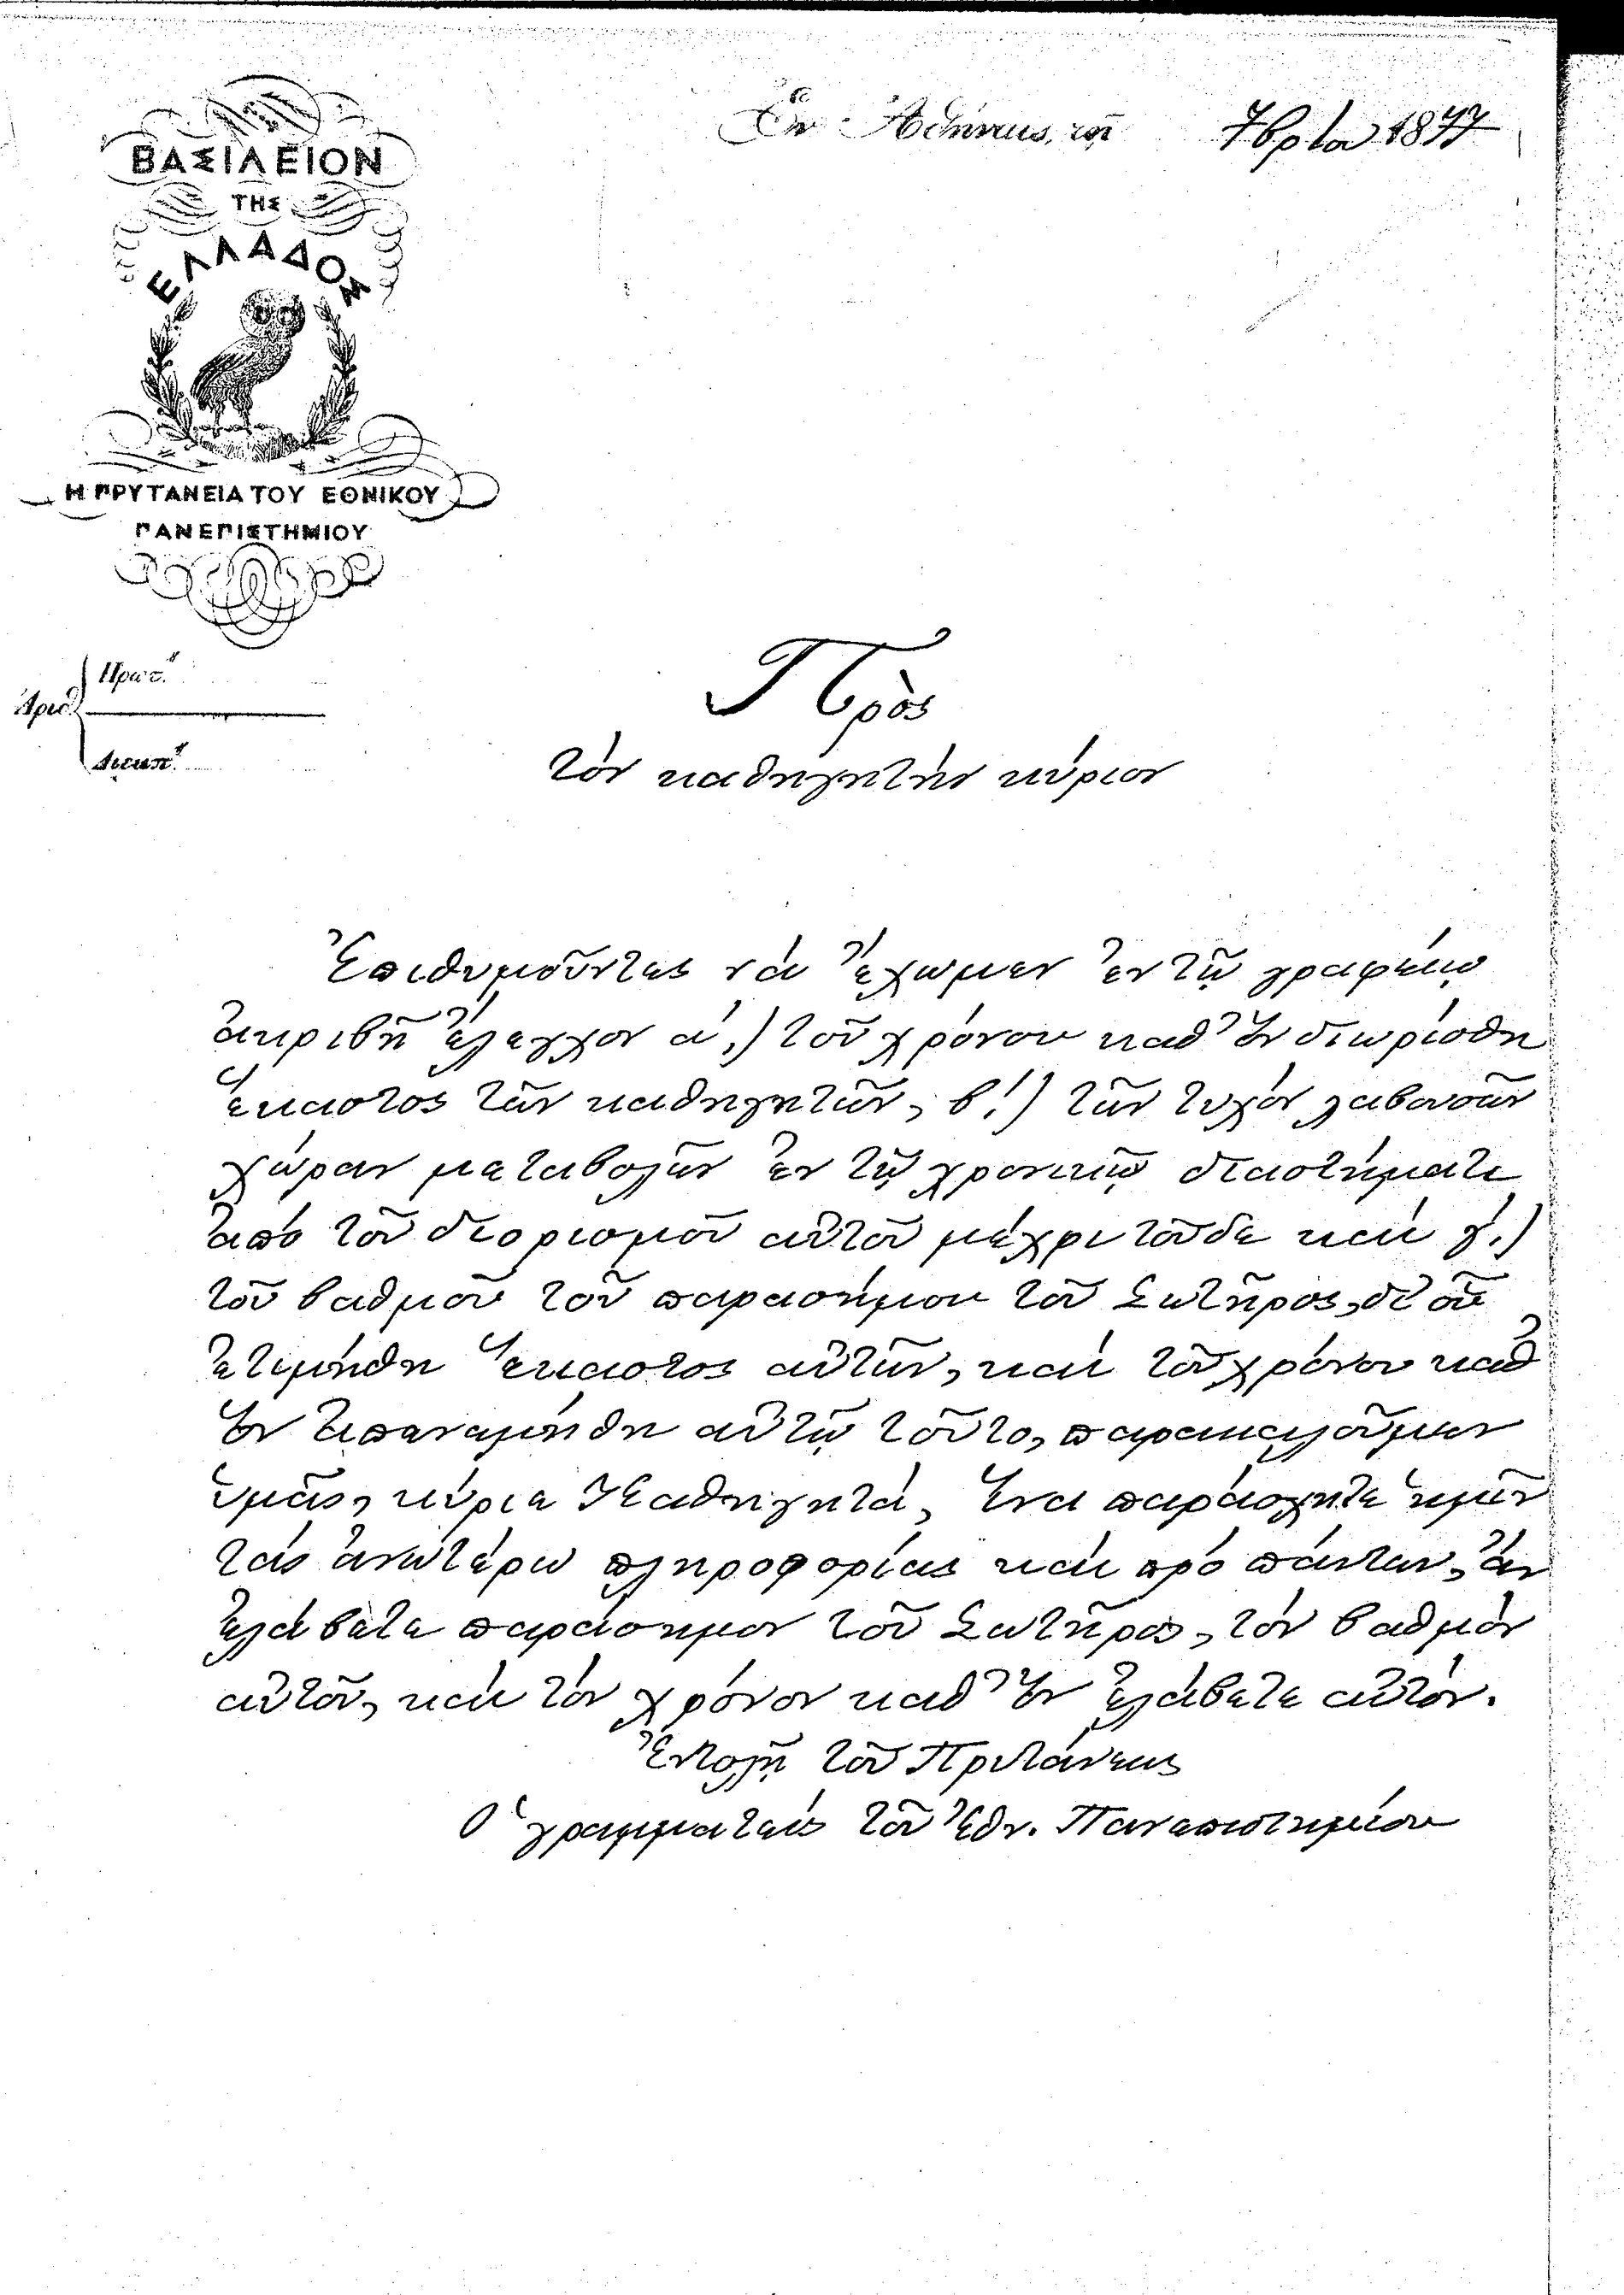 Ἐν Ἀθήναις, τῇ 7βρίου 1877
ΒΑΣΙΛΕΙΟΝ
ΤΗΣ
ΕΛΛΑΔΟΣ
Η ΠΡΥΤΑΝΕΙΑ ΤΟΥ ΕΘΝΙΚΟΥ
ΠΑΝΕΠΙΣΤΗΜΙΟΥ
Πρωτ.
Ἀριθ.
Διεκπ.
Πρὸς
τὸν καθηγητὴν κύριον
Ἐπιθυμοῦντες νὰ ἔχωμεν ἐν τῷ γραφείῳ
ἀκριβῆ ἔλεγχον α΄.) τοῦ χρόνου καθ' ὃν διωρίσθη
ἕκαστος τῶν καθηγητῶν, β΄.) τῶν τυχὸν λαβουσῶν
χώραν μεταβολῶν ἐν τῷ χρονικῷ διαστήματι
ἀπὸ τοῦ διορισμοῦ αὐτοῦ μέχρι τοῦδε καὶ γ΄.)
τοῦ βαθμοῦ τοῦ παρασήμου τοῦ Σωτῆρος, δι' οὗ
ἐτιμήθη ἕκαστος αὐτῶν, καὶ τοῦ χρόνου καθ'
ὃν ἀπενεμήθη αὐτῷ τοῦτο, παρακαλοῦμεν
ὑμᾶς, κύριε Καθηγητά, ἵνα παράσχητε ἡμῖν
τὰς ἀνωτέρω πληροφορίας καὶ πρὸ πάντων, ἂν
ἐλάβετε παράσημον τοῦ Σωτῆρος, τὸν βαθμὸν
αὐτοῦ, καὶ τὸν χρόνον καθ' ὃν ἐλάβετε αὐτόν.
Ἐντολῇ τοῦ Πρυτάνεως
Ὁ γραμματεὺς τοῦ Ἐθν. Πανεπιστημίου